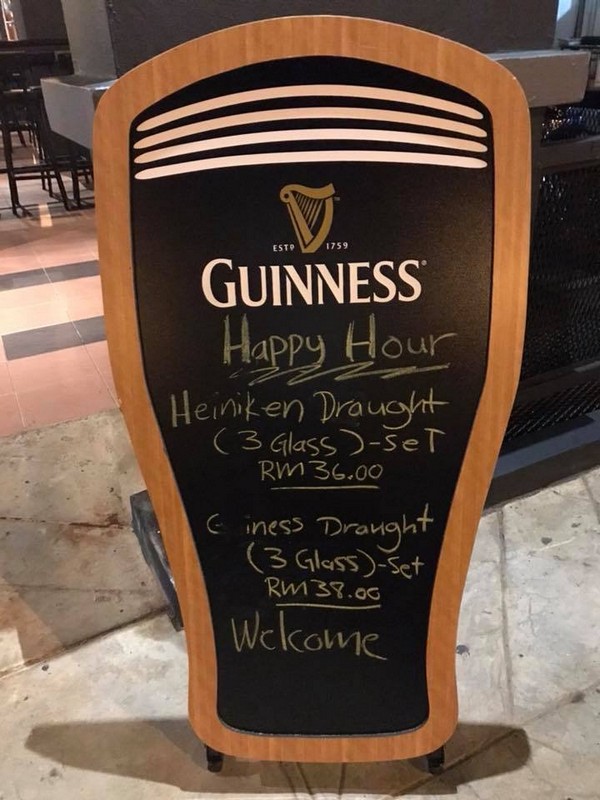 ESTD 1759
GUINNESS
Happy Hour
Heiniken Draught
(3 Glass)-SeT
RM 36.00
(3 Glass)-Set
Draught
RM 38.00
Welcome